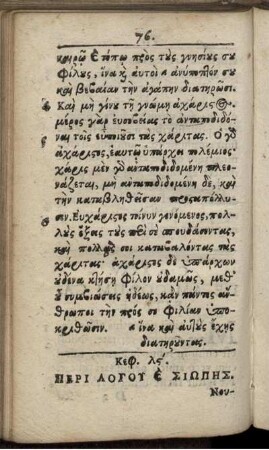 76.
καιρῷ & τόπῳ πρὸς τοὺς γνησίους σου
φίλους, ἵνα κ̀ αὐτοὶ ἀνύποπτόν σου
καὶ βεβαίαν τὴν ἀγάπην διατηρῶσι.
Καὶ μὴ γίνου τῇ γνώμῃ ἀχάριστος·
μέρος γὰρ εὐποιΐας τὸ ἀνταποδιδό-
ναι τοῖς εὐποιοῦσι τὰς χάριτας. Ὁ γὸ
ἀχάριστος, ἑαυτῷ ὑπάρχει πολέμιος·
χάρις μὲν γὸ ἀνταποδιδομένη πλεο-
νάζεται, μὴ ἀνταποδιδομένη δὲ, καὶ
τὴν καταβληθεῖσαν προσαπόλλυ-
σιν. Εὐχάριστος τοίνυν γενόμενος, πολ-
λοὺς ἕξεις τοὺς σοι σπουδάσοντας,
καὶ πολλοὺς σοι καταβαλόντας τὰς
χάριτας· ἀχάριστος δὲ ὑπάρχων
οὐδένα κτήσῃ φίλον οὐδαμῶς, μεθ'
οὗ συμβιώσεις ἡδέως, κἂν πάντες ἄν-
θρωποι τὴν πρὸς σε φιλίαν ὑπο-
κριθῶσιν. ἵνα καὶ αὐτοὺς ἔχῃς
διατηροῦντας.
Κεφ. λς΄.
ΠΕΡΙ ΛΟΓΟΥ & ΣΙΩΠΗΣ.
Νου-